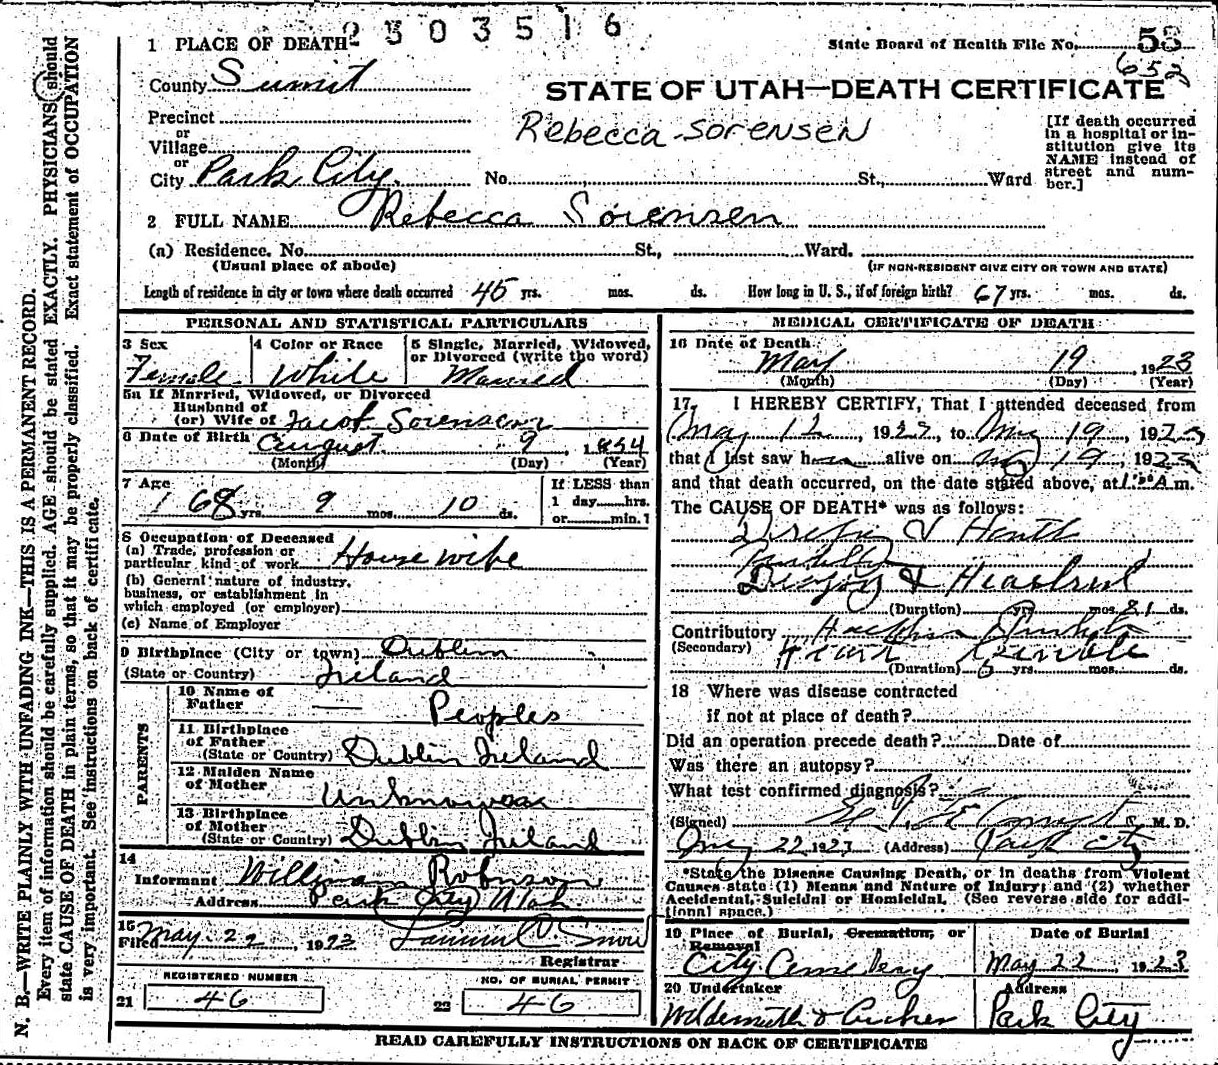 2303516
1 PLACE OF DEATH
State Board of Health File No. 58
652
County Sumit
STATE OF UTAH—DEATH CERTIFICATE
Precinct
or
Village
or
City Park City. No. St., Ward
Rebecca Sorensen
[If death occurred
in a hospital or in-
stitution give its
NAME instead of
street and num-
ber.]
2 FULL NAME Rebecca Sorensen
(a) Residence. No. St., Ward.
(Usual place of abode) (IF NON-RESIDENT GIVE CITY OR TOWN AND STATE)
Length of residence in city or town where death occurred 45 yrs. mos. ds. How long in U. S., if of foreign birth? 67 yrs. mos. ds.
PERSONAL AND STATISTICAL PARTICULARS
3 Sex 4 Color or Race 5 Single, Married, Widowed,
or Divorced (write the word)
Female White Married
5a If Married, Widowed, or Divorced
Husband of
(or) Wife of Jacob
6 Date of Birth August 9, 1854
(Month) (Day) (Year)
7 Age If LESS than
1 day hrs.
or min.
68 yrs. 9 mos. 10 ds.
8 Occupation of Deceased
(a) Trade, profession or
particular kind of work House wife
(b) General nature of industry,
business, or establishment in
which employed (or employer)
(c) Name of Employer
9 Birthplace (City or town) Dublin
(State or Country) Ireland
PARENTS
10 Name of
Father Peoples
11 Birthplace
of Father
(State or Country) Dublin Ireland
12 Maiden Name
of Mother Unknown
13 Birthplace
of Mother
(State or Country) Dublin Ireland
14
Informant William Robinson
Address Park City Utah
15
Filed May 22, 1923 Snow
Registrar
REGISTERED NUMBER NO. OF BURIAL PERMIT
21 46 22 46
MEDICAL CERTIFICATE OF DEATH
16 Date of Death
May 19, 1923
(Month) (Day) (Year)
17. I HEREBY CERTIFY, That I attended deceased from
May 12, 192 to May 19, 1923
that I last saw h alive on May 19, 1923
and that death occurred, on the date stated above, at A m.
The CAUSE OF DEATH* was as follows:
(Duration) yrs. mos. 21 ds.
Contributory
(Secondary) Heart
(Duration) yrs. mos. ds.
18 Where was disease contracted
if not at place of death?
Did an operation precede death? Date of
Was there an autopsy?
What test confirmed diagnosis?
(Signed) M. D.
May 22 1923 (Address) Park City
*State the Disease Causing Death, or in deaths from Violent
Causes state (1) Means and Nature of Injury; and (2) whether
Accidental, Suicidal or Homicidal. (See reverse side for addi-
tional space.)
19 Place of Burial, Cremation, or
Removal Date of Burial
City Cemetery May 22, 1923
20 Undertaker Address
Wildemuth & Archer Park City
READ CAREFULLY INSTRUCTIONS ON BACK OF CERTIFICATE
N. B.—WRITE PLAINLY WITH UNFADING INK—THIS IS A PERMANENT RECORD.
Every item of information should be carefully supplied. AGE should be stated EXACTLY. PHYSICIANS should
state CAUSE OF DEATH in plain terms, so that it may be properly classified. Exact statement of OCCUPATION
is very important. See instructions on back of certificate.